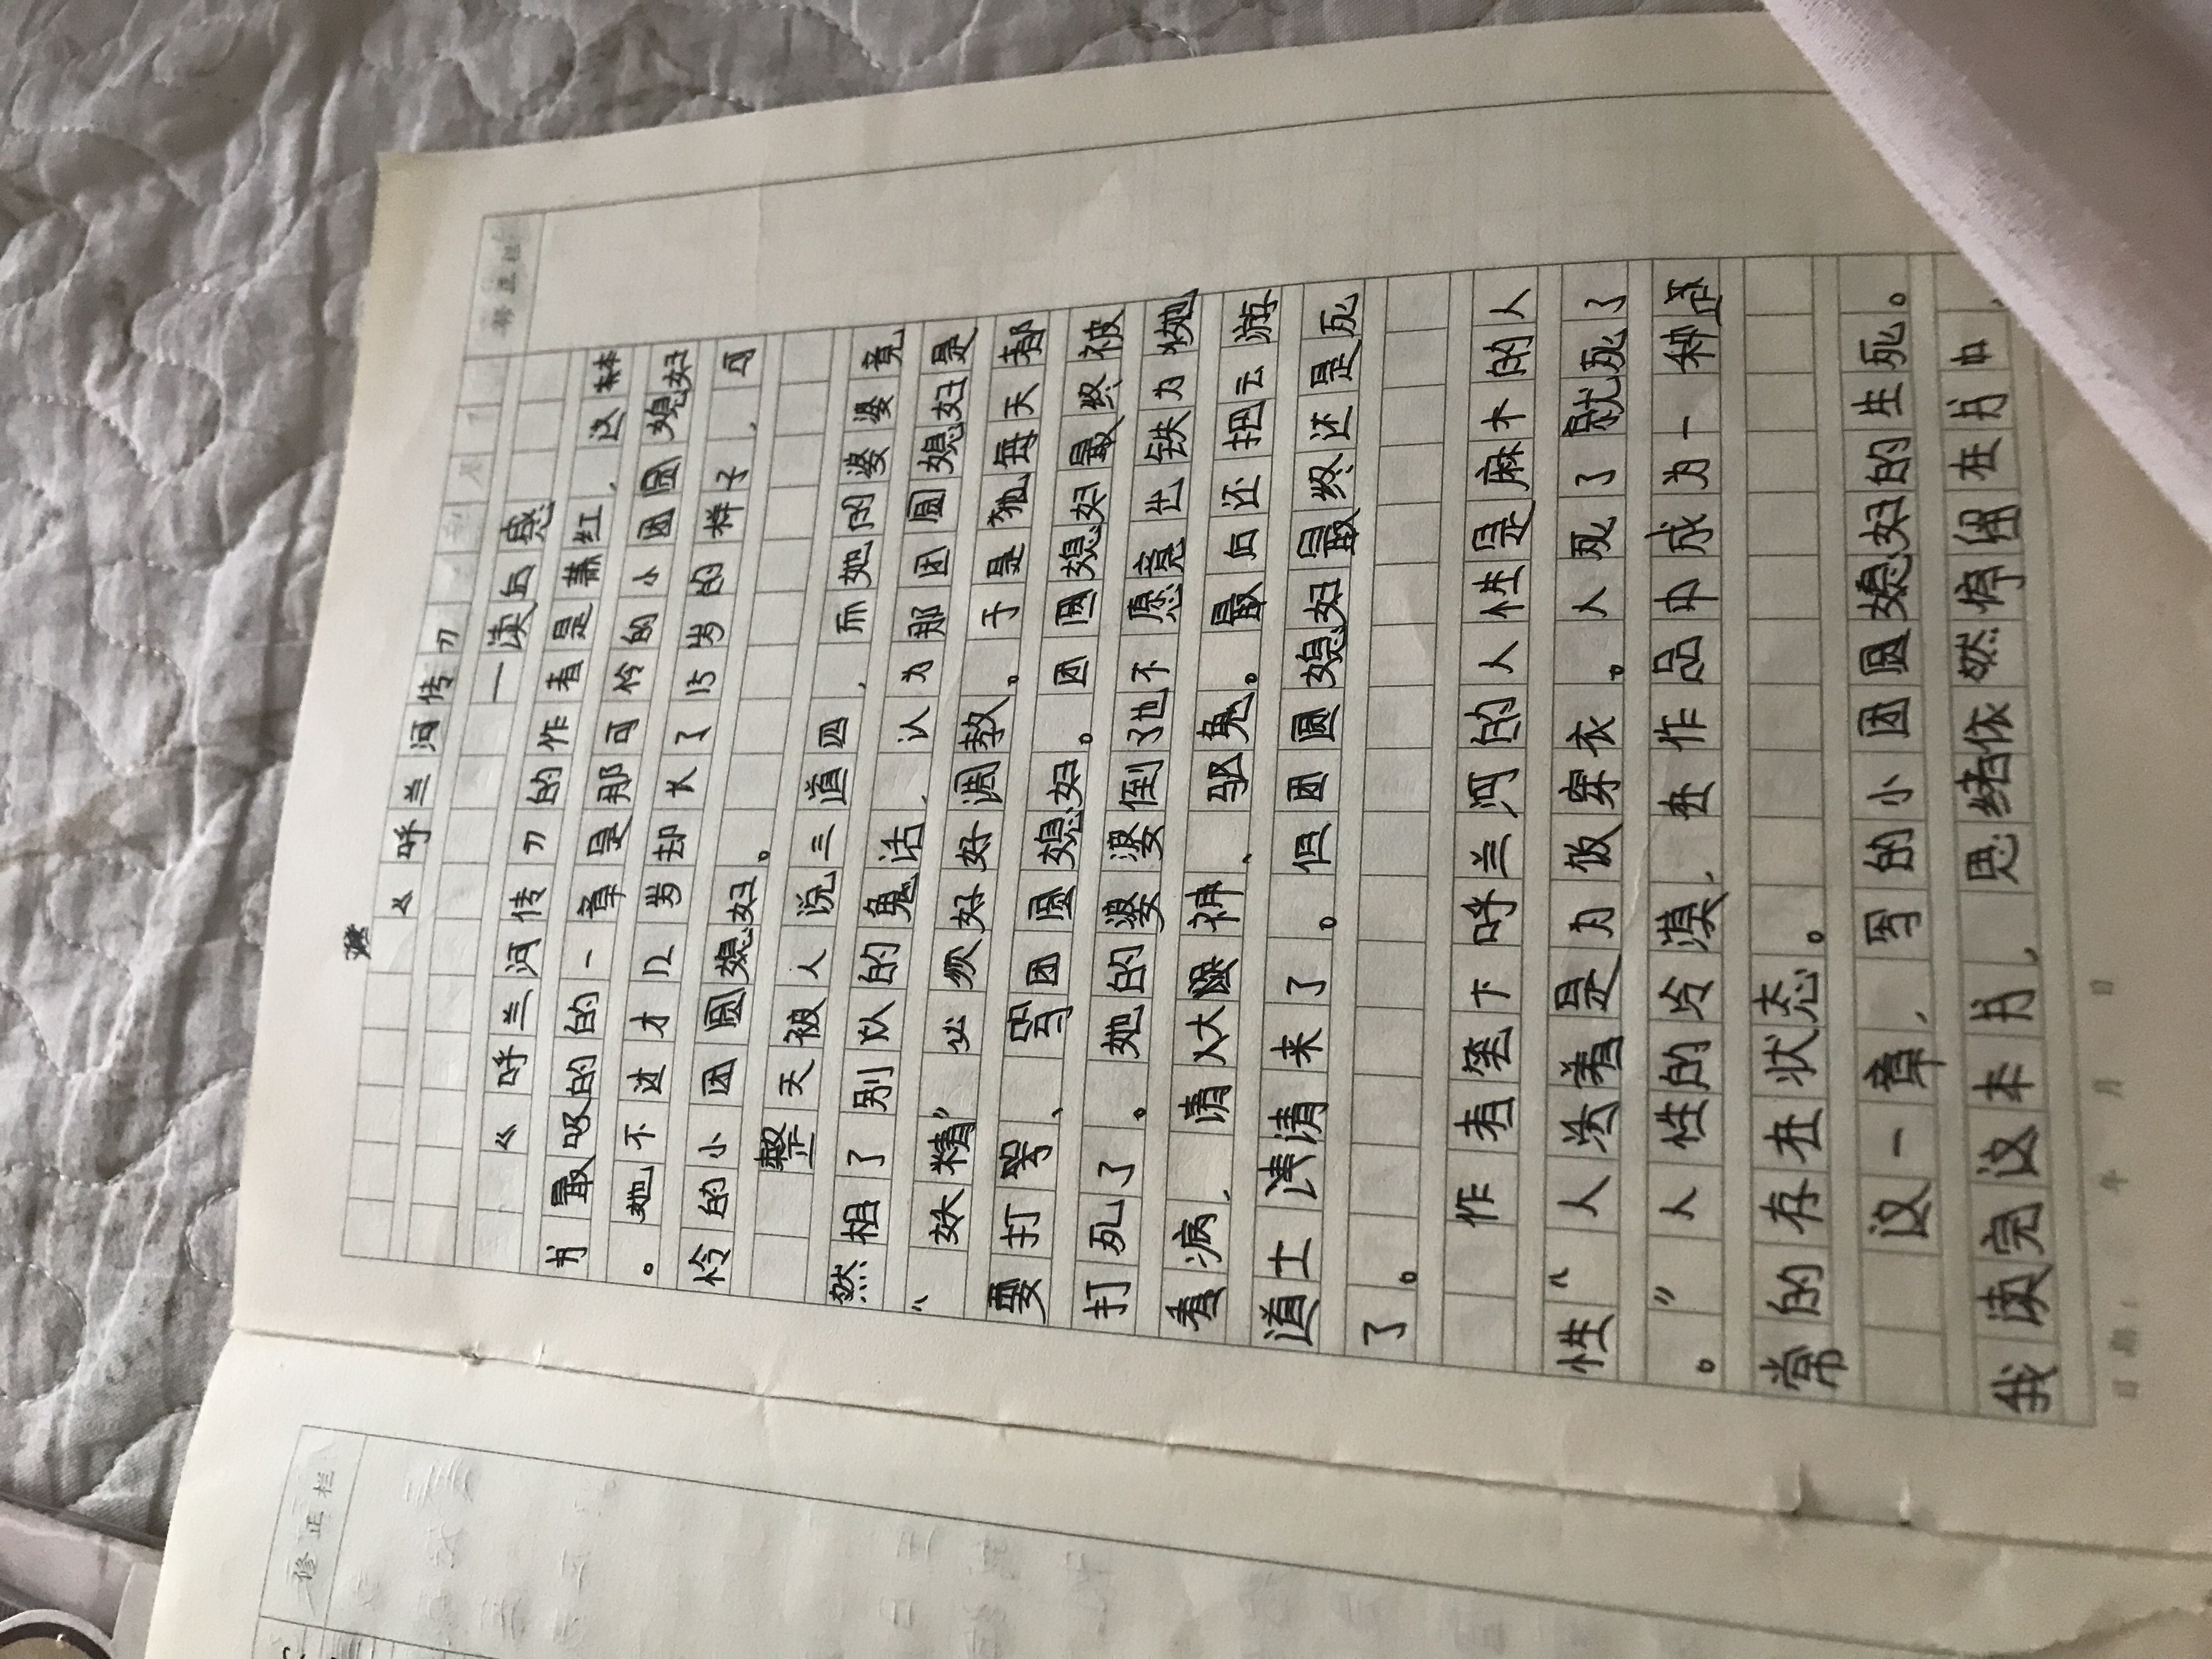 《呼兰河传》
一读后感
《呼兰河传》的作者是萧红,这本
书最吸的的一章是那可怜的小团圆媳妇
。她不过才12岁却大了15岁的样子,可
怜的小团圆媳妇。
整天被人说三道四,而她的婆婆竟
然相了别以的鬼话,认为那团圆媳妇是
“妖精”必须好好调教。于是她每天都
要打骂、骂团圆媳妇。团圆媳妇最终被
打死了。她的婆婆倒了也不愿意出钱为她
看病,请人大跳神、驱鬼。最后还把云游
道士请请来了。但团圆媳妇最终还是死
了。
作者笔下呼兰河的人性是麻木的人
性“人活着是为饭穿衣。人死了就死了
”人性的冷漠,在作品中成为一种正
常的存在状态。
这一章,写的小团圆媳妇的生死。
我读完这本书,思绪依然停留在书中,
年 月 日
修正栏